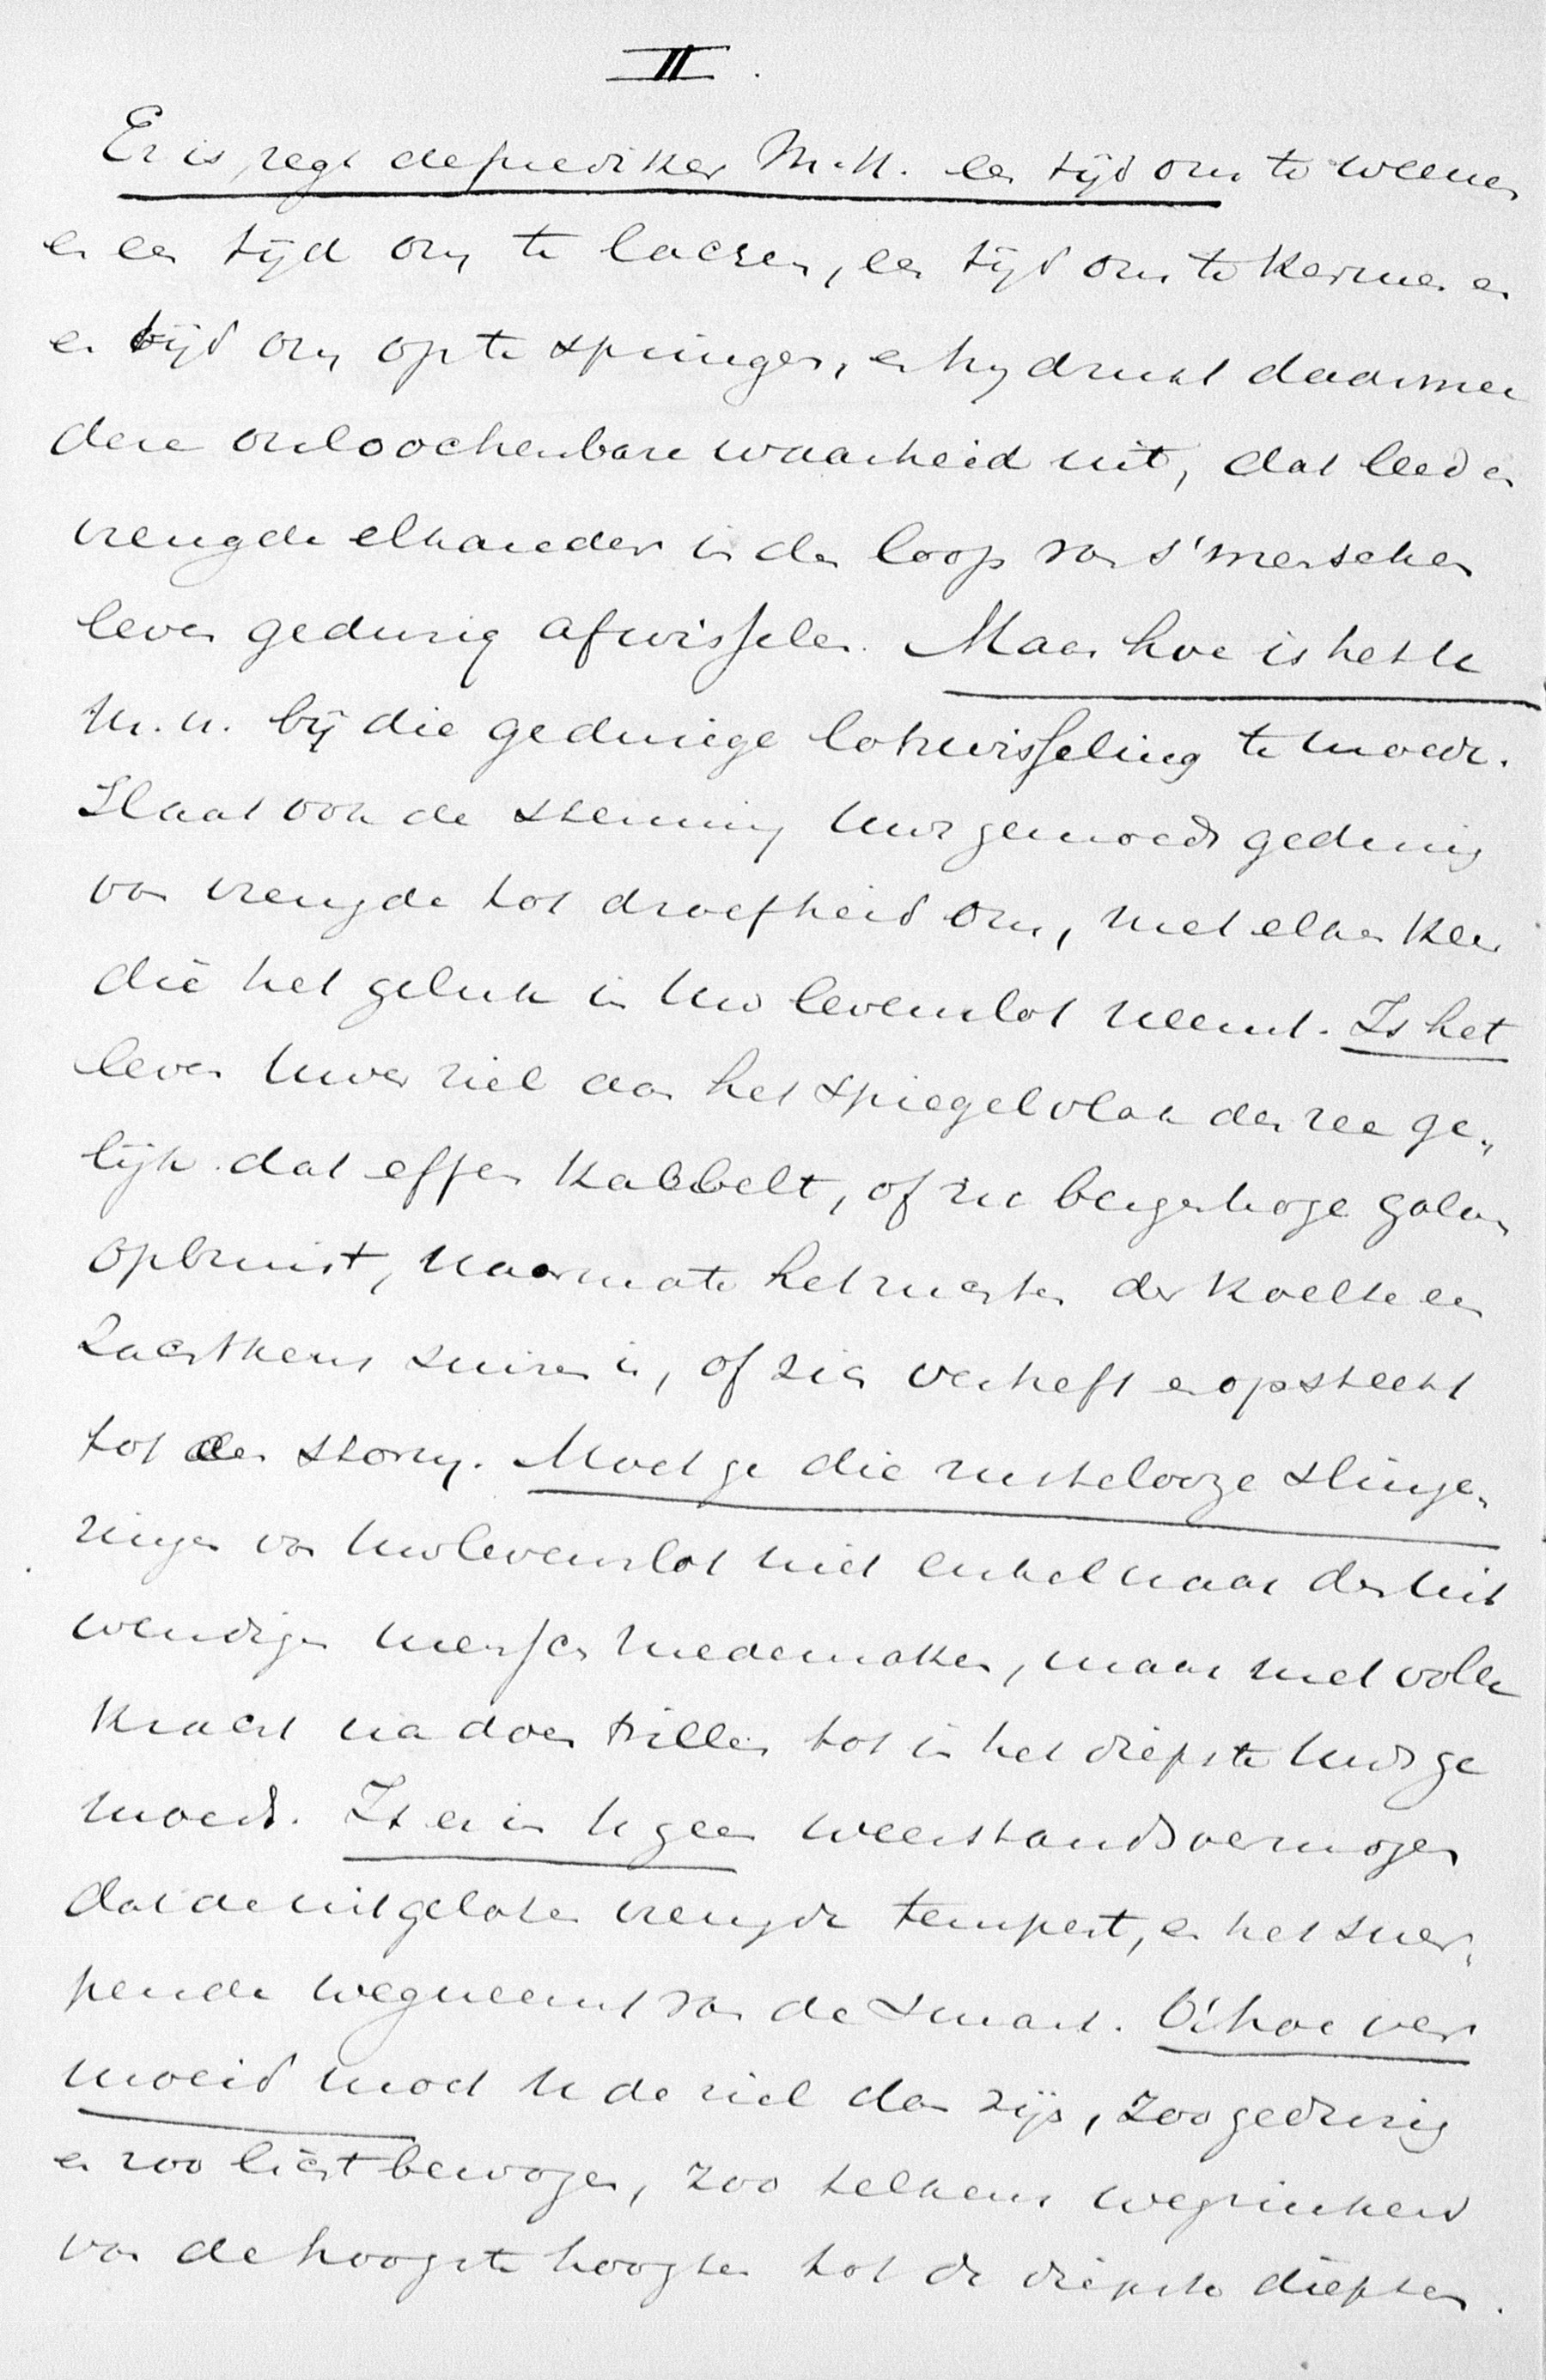 II.
Er is, zegt de prediker M.H. een tijd om te weenen
en een tijd om te lachen, een tijd om te kermen en
en tijd om op te springen, en hy drukt daarmee
dere onloochenbare waarheid uit, dat leed en
vreugde elkander in den loop van s'menschen
leven gedurig afwisselen. Maar hoe is het U
M.H. bij die gedurige lotswisseling te moede.
Slaat ook de stemming Uws gemoeds gedurig
van vreugde tot droefheid om, met elken keer
die het geluk in Uw levenslot neemt. Is het
leven Uwer ziel aan het spiegelvlak der zee ge„
lijk dat effen kabbelt, of zie bergenhoge golven
opbruist, naarmate het ruischen der koelte een
zachtkens suizen is, of zich verheft en opsteekt
tot een storm. Moet ge die rustelooze slinge„
ringen van Uw levenslot niet enkel naar den uit
wendigen mensch medemaken, maar met volle
kracht na doen trillen tot in het diepste Uws ge
moeds. Is er in U geen weerstandsvermogen
dat de uitgelaten vreugde tempert, en het sner„
pende wegneemt van de smart. O! hoe ver
moeid moet U de ziel dan zijn, zoo gedurig
en zoo licht bewogen, zoo telkens wegzinkend
van de hoogste hoogten tot de diepste diepten.